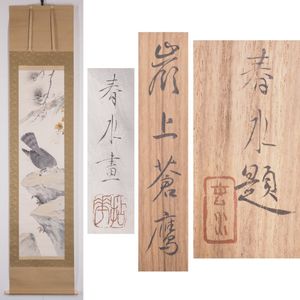 春水畫
嶺上蒼鷹
春水題